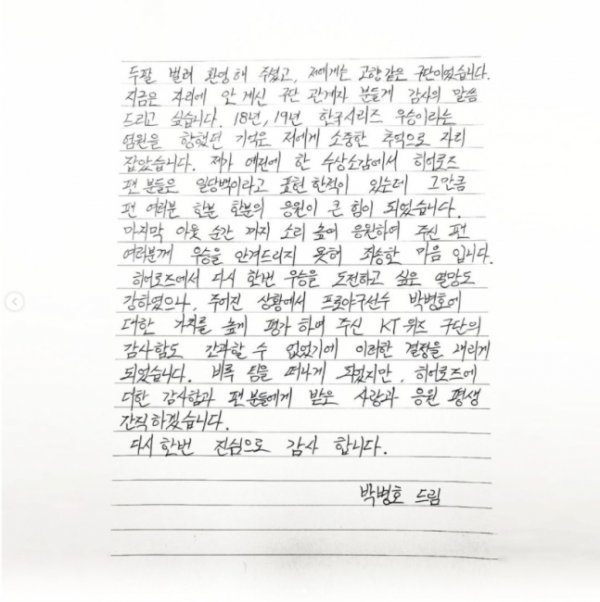 두팔 벌려 환영해 주셨고, 저에게는 고향같은 구단이었습니다.
지금은 자리에 안 계신 구단 관계자 분들께 감사의 말씀
드리고 싶습니다. 18년, 19년 한국시리즈 우승이라는
염원을 향했던 기억은 저에게 소중한 추억으로 자리
잡았습니다. 제가 예전에 한 수상소감에서 히어로즈
팬 분들은 일당백이라고 표현 한적이 있는데 그만큼
팬 여러분 한분 한분의 응원이 큰 힘이 되었습니다.
마지막 아웃 순간 까지 소리 높여 응원하여 주신 팬
여러분께 우승을 안겨드리지 못해 죄송한 마음 입니다.
히어로즈에서 다시 한번 우승을 도전하고 싶은 열망도
강하였으나, 주어진 상황에서 프로야구선수 박병호에
대한 가치를 높게 평가 하여 주신 KT위즈 구단의
감사함도 간과할 수 없었기에 이러한 결정을 내리게
되었습니다. 비록 팀을 떠나게 되었지만, 히어로즈에
대한 감사함과 팬분들에게 받은 사랑과 응원 평생
간직하겠습니다.
다시 한번 진심으로 감사 합니다.
박병호 드림